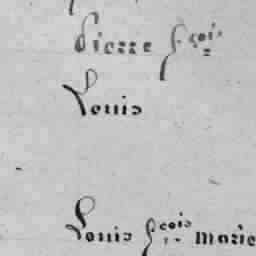 Pierre fçois
Louis
Louis fçois Marie